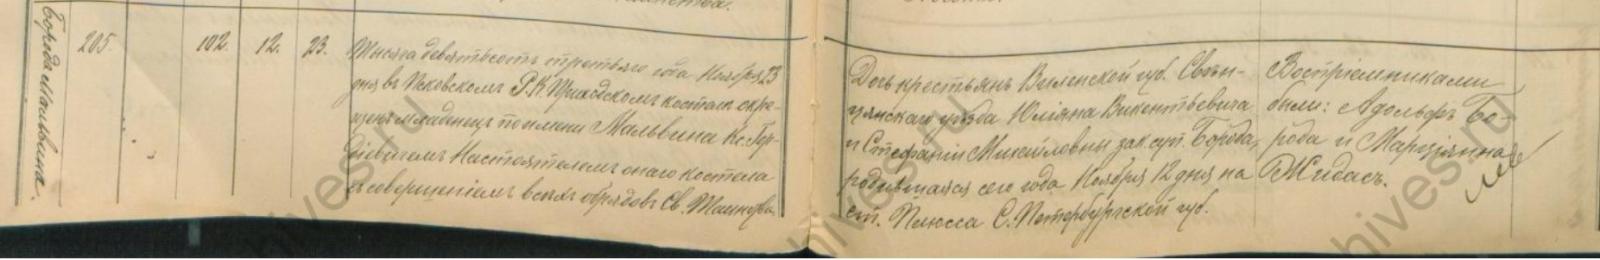 Борода Мальвина.
205. 102. 12. 23.
Тысяча девятьсотъ третьяго года Ноября 23
дня въ Псковскомъ Р. К. Приходскомъ костелѣ окре-
щенъ младенецъ по имени Мальвина Кс.
Настоятелемъ онаго костела
съ совершеніемъ всѣхъ обрядовъ Св. Таинства.
Дочь крестьянъ Виленской губ. Свѣн-
цянскаго уѣзда Юліяна Викентьевича
и Стефаніи Михайловны зак. суп. Борода,
родившаяся сего года Ноября 12 дня на
ст. Плюсса С. Петербургской губ.
Воспріемниками
были: Адольфъ Бо-
рода и Марціянна
Жидасъ.